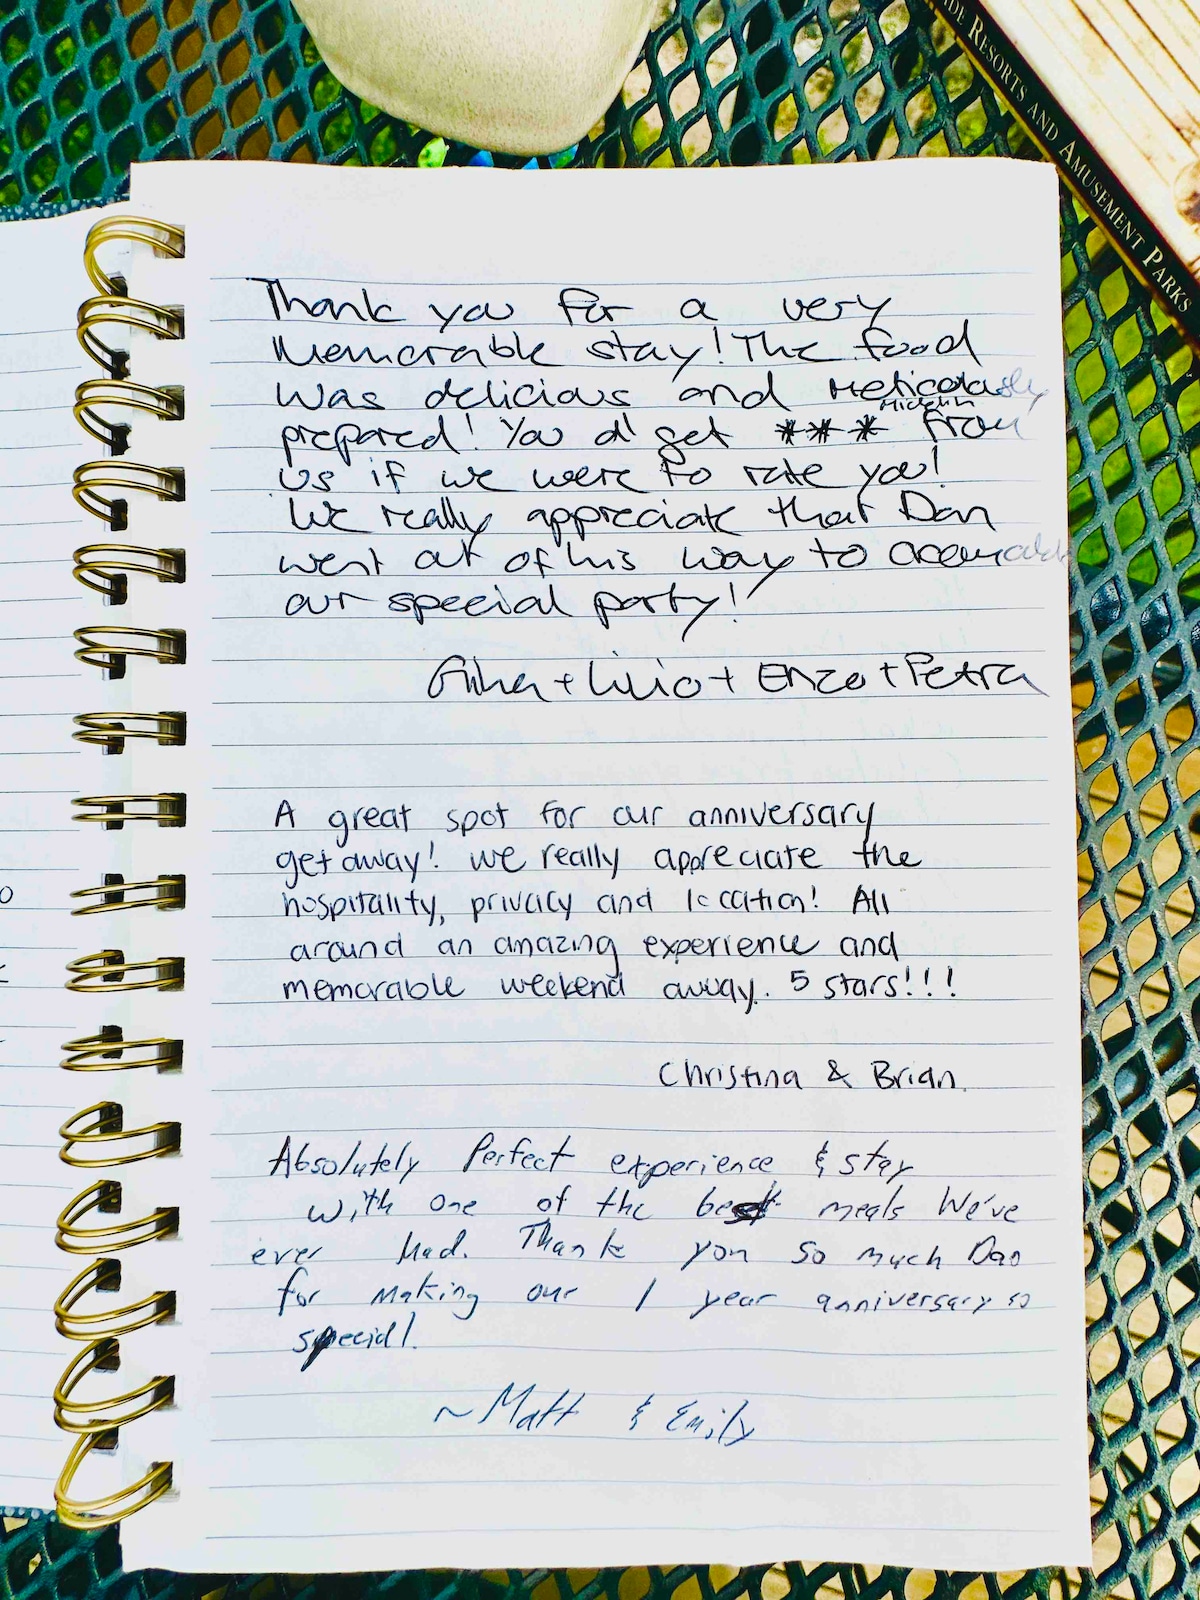 IDE RESORTS AND AMUSEMENT PARKS
Thank you for a very
memorable stay! The food
was delicious and meticolously
Michelin
prepared! You'd get *** from
us if we were to rate you!
We really appreciate that Dan
went out of his way to
our special party!
+ Livio + Enzo + Petra
A great spot for our anniversary
get away! we really appreciate the
hospitality, privacy and location! All
around an amazing experience and
memorable weekend away. 5 stars!!!
Christina & Brian.
Absolutely Perfect experience & stay
with one of the best meals We've
ever had. Thank you so much Dan
for making our 1 year anniversary so
special!
~Matt & Emily